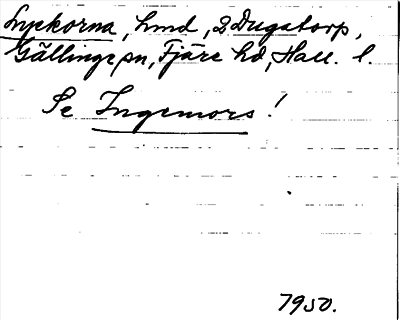 Lyckorna, hmd, 2 Dugatorp,
Gällinge sn, Fjäre hd, Hall. l.
Se Ingemors!
1950.